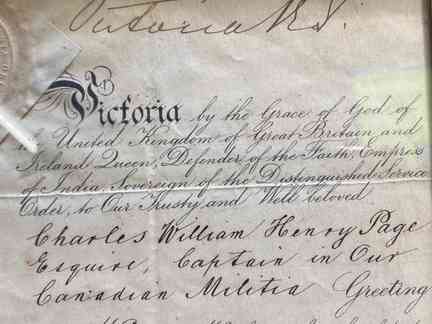 Victoria R.I.
Victoria by the Grace of God of
the United Kingdom of Great Britain and
Ireland Queen, Defender of the Faith, Empress
of India, Sovereign of the Distinguished Service
Order, to Our Trusty and Well beloved
Charles William Henry Page
Esquire, Captain in Our
Canadian Militia Greeting